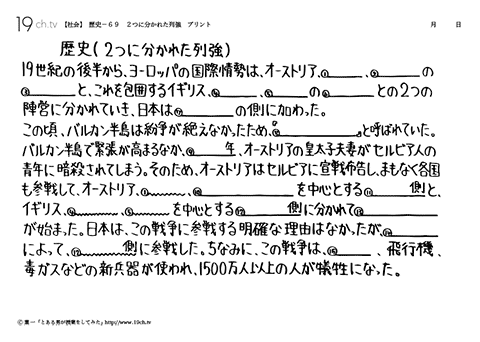 19ch.tv 【社会】 歴史－69 2つに分かれた列強 プリント 月 日
歴史(2つに分かれた列強)
19世紀の後半から、ヨーロッパの国際情勢は、オーストリア、 、 の
と、これを包囲するイギリス、 、 の との2つの
陣営に分かれていき、日本は の側に加わった。
この頃、バルカン半島は紛争が絶えなかったため、『 』と呼ばれていた。
バルカン半島で緊張が高まるなか、 年、オーストリアの皇太子夫妻がセルビア人の
青年に暗殺されてしまう。そのため、オーストリアはセルビアに宣戦布告し、まもなく各国
も参戦して、オーストリア、 、 を中心とする 側と、
イギリス、 、 を中心とする 側に分かれて
が始まった。日本は、この戦争に参戦する明確な理由はなかったが、
によって、 側に参戦した。ちなみに、この戦争は、 、飛行機、
毒ガスなどの新兵器が使われ、1500万人以上の人が犠牲になった。
© 葉一「とある男が授業をしてみた」http://www.19ch.tv